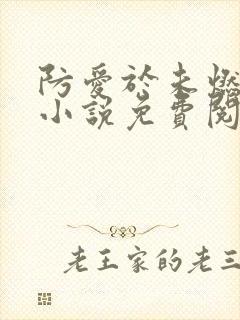 防爱於未燃
小说免费阅
老王家的老三